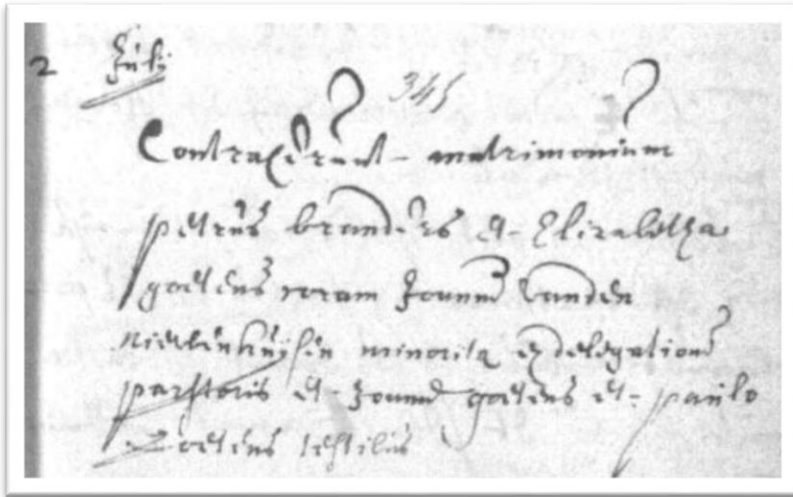 2 July
345
Contraxerunt matrimonium
petrus branders et Elizabetha
goetens coram Joanne vanden
nieuwenhuijsen minorita ex delegatione
parstoris et Joanne goetens et paulo
goetens testibus